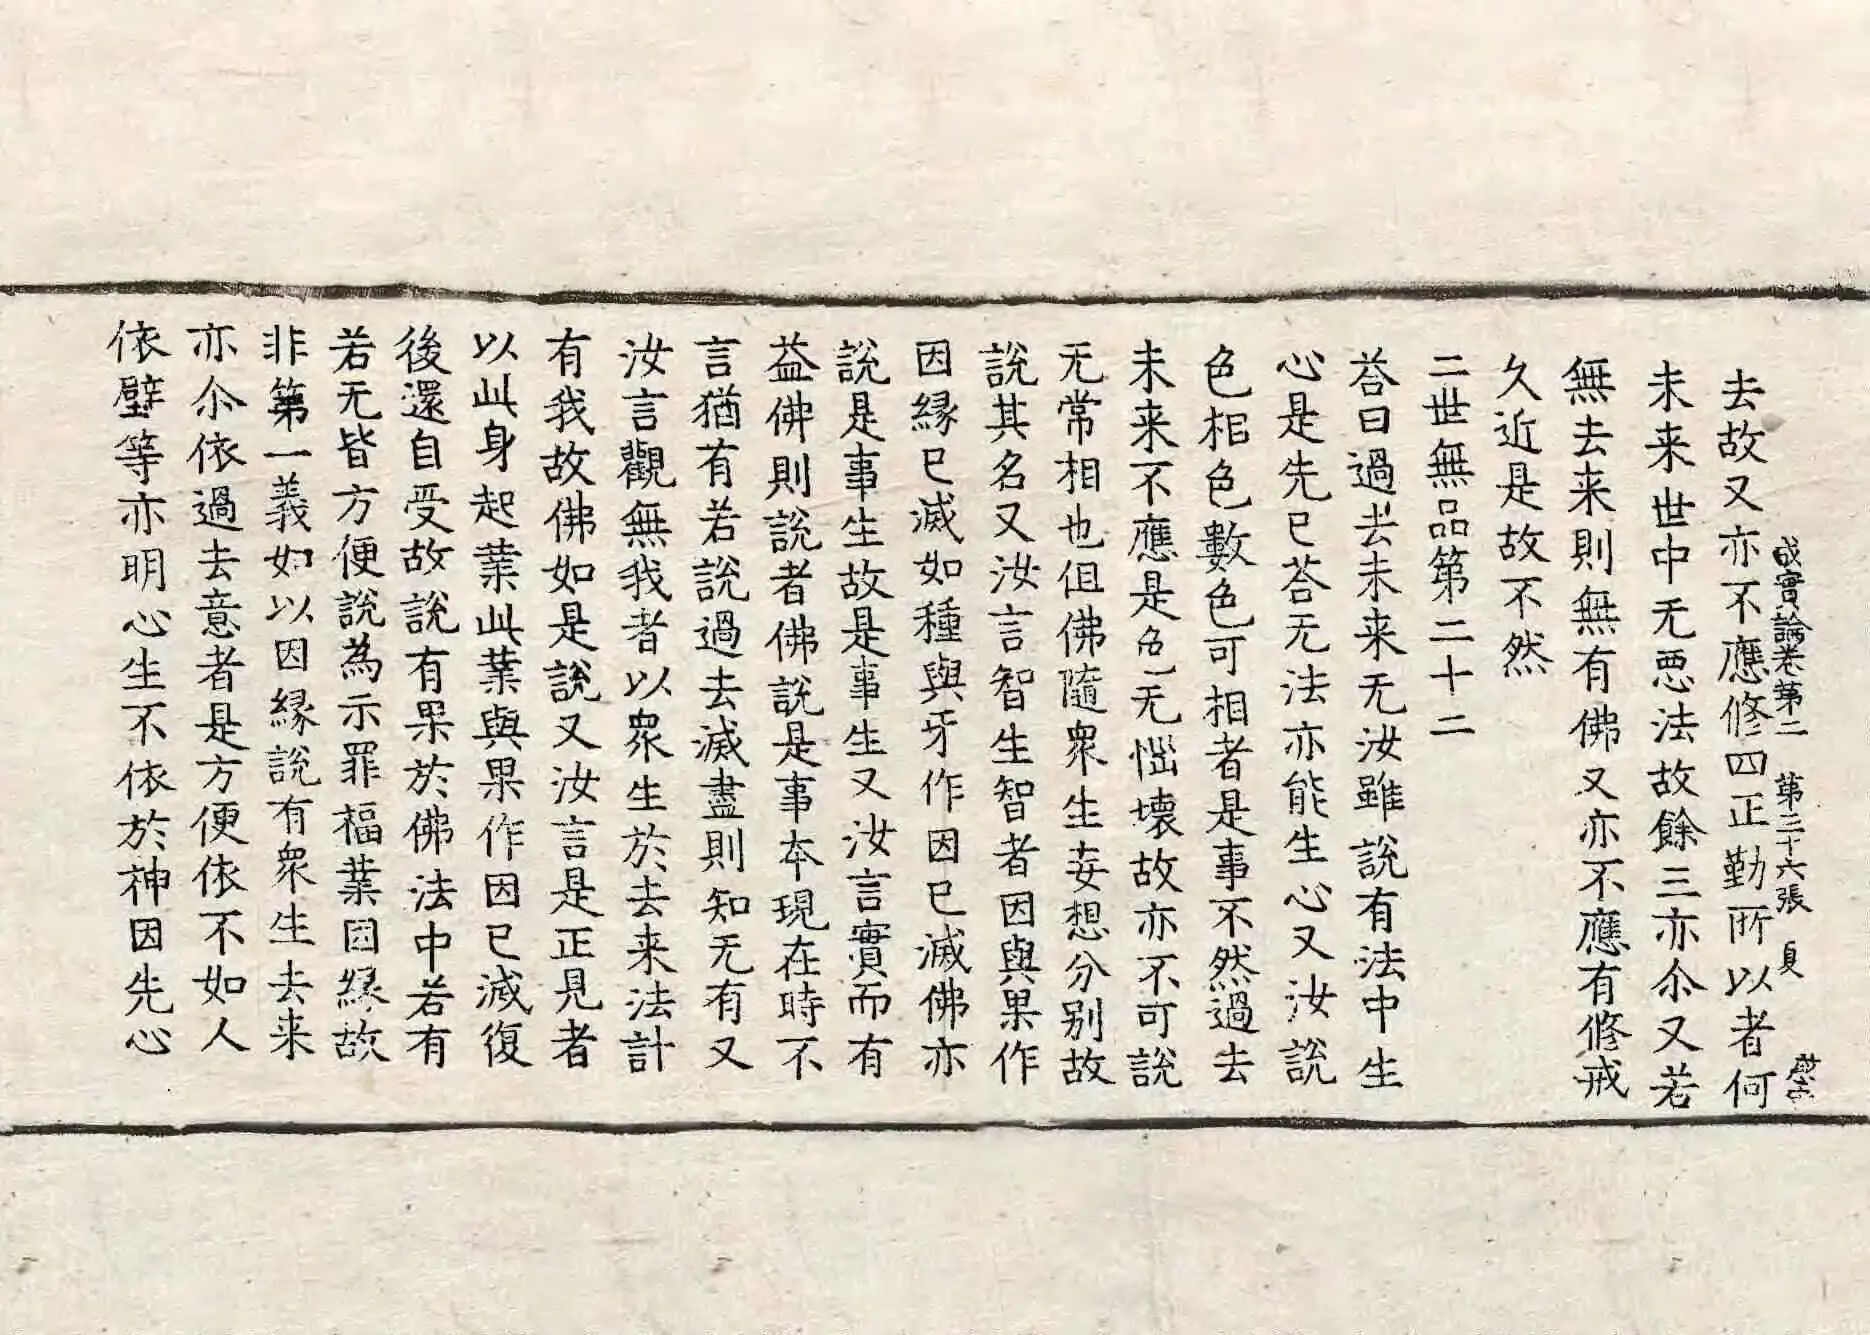 成實論卷第二 第三十六張 身
去故又亦不應修四正勤所以者何
未来世中无𢙣法故餘三亦尒又若
無去来則無有佛又亦不應有修戒
久近是故不然
二世無品第二十二
荅曰過去未来无汝雖說有法中生
心是先已荅无法亦能生心又汝說
色相色數色可相者是事不然過去
未来不應是色无惱壞故亦不可說
无常相也但佛隨衆生妄想分别故
說其名又汝言智生智者因與果作
因縁已滅如種與牙作因已滅佛亦
說是事生故是事生又汝言實而有
益佛則說者佛說是事本現在時不
言猶有若說過去滅盡則知无有又
汝言觀無我者以衆生於去来法計
有我故佛如是說又汝言是正見者
以此身起業此業與果作因已滅復
後還自受故說有果於佛法中若有
若无皆方便說為示罪福業因縁故
非第一義如以因縁說有衆生去来
亦尒依過去意者是方便依不如人
依壁等亦明心生不依於神因先心